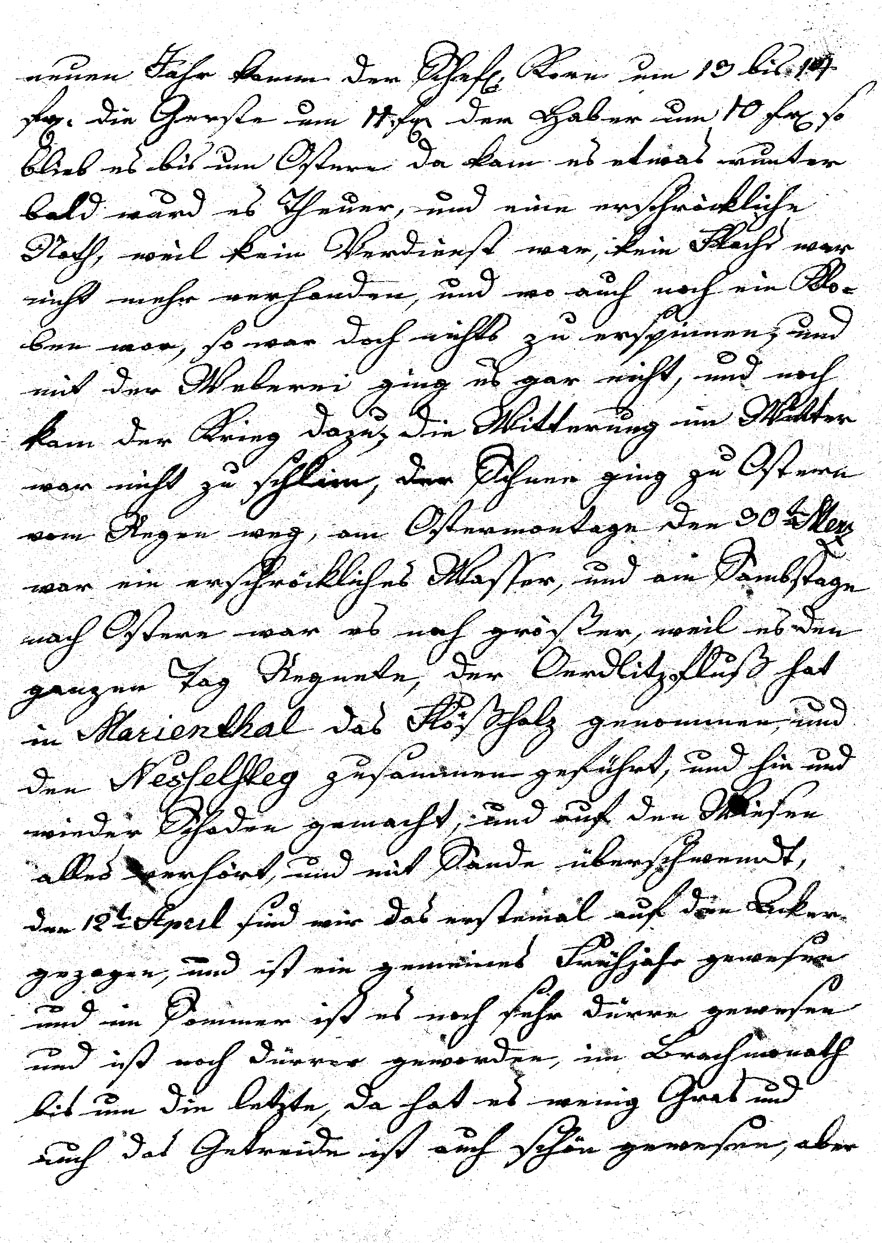 neuen Jahr kamm der Schef. Korn um 13 bis 14
fx. die Gerste um 11 fx der Haber um 10 fx so
blieb es bis um Ostern da kam es etwas runter
bald ward es Theuer, und eine erschröckliche
Noth, weil kein Verdienst war, kein Flachs war
nicht mehr verhanden, und wo auch noch ein Klo-
ben war, so war doch nichts zu erspinnen, und
mit der Weberei ging es gar nicht, und noch
kam der Krieg dazu, die Witterung im Winter
war nicht zu schlim, der Schnee ging zu Ostern
vom Regen weg, am Ostermontage den 30t Merz
war ein erschröckliches Wasser, und am Sambstage
nach Ostern war es noch größer, weil es den
ganzen Tag Regnete, der Oerdlitzfluß hat
in Marienthal das Flößholz genommen, und
den Nesselsteg zusammen geführt, und hin und
wieder Schaden gemacht, und auf den Wiesen
alles verhört, und mit Sande überschwemdt,
den 12t April sind wir das erstemal auf den Acker
gezogen, und ist ein gemeines Frühjahr gewesen
und im Sommer ist es noch sehr dürre gewesen
und ist noch dürrer geworden, im Brachmonath
bis um die letzte, da hat es wenig Gras und
auch das Getreide ist auch schön gewesen, aber